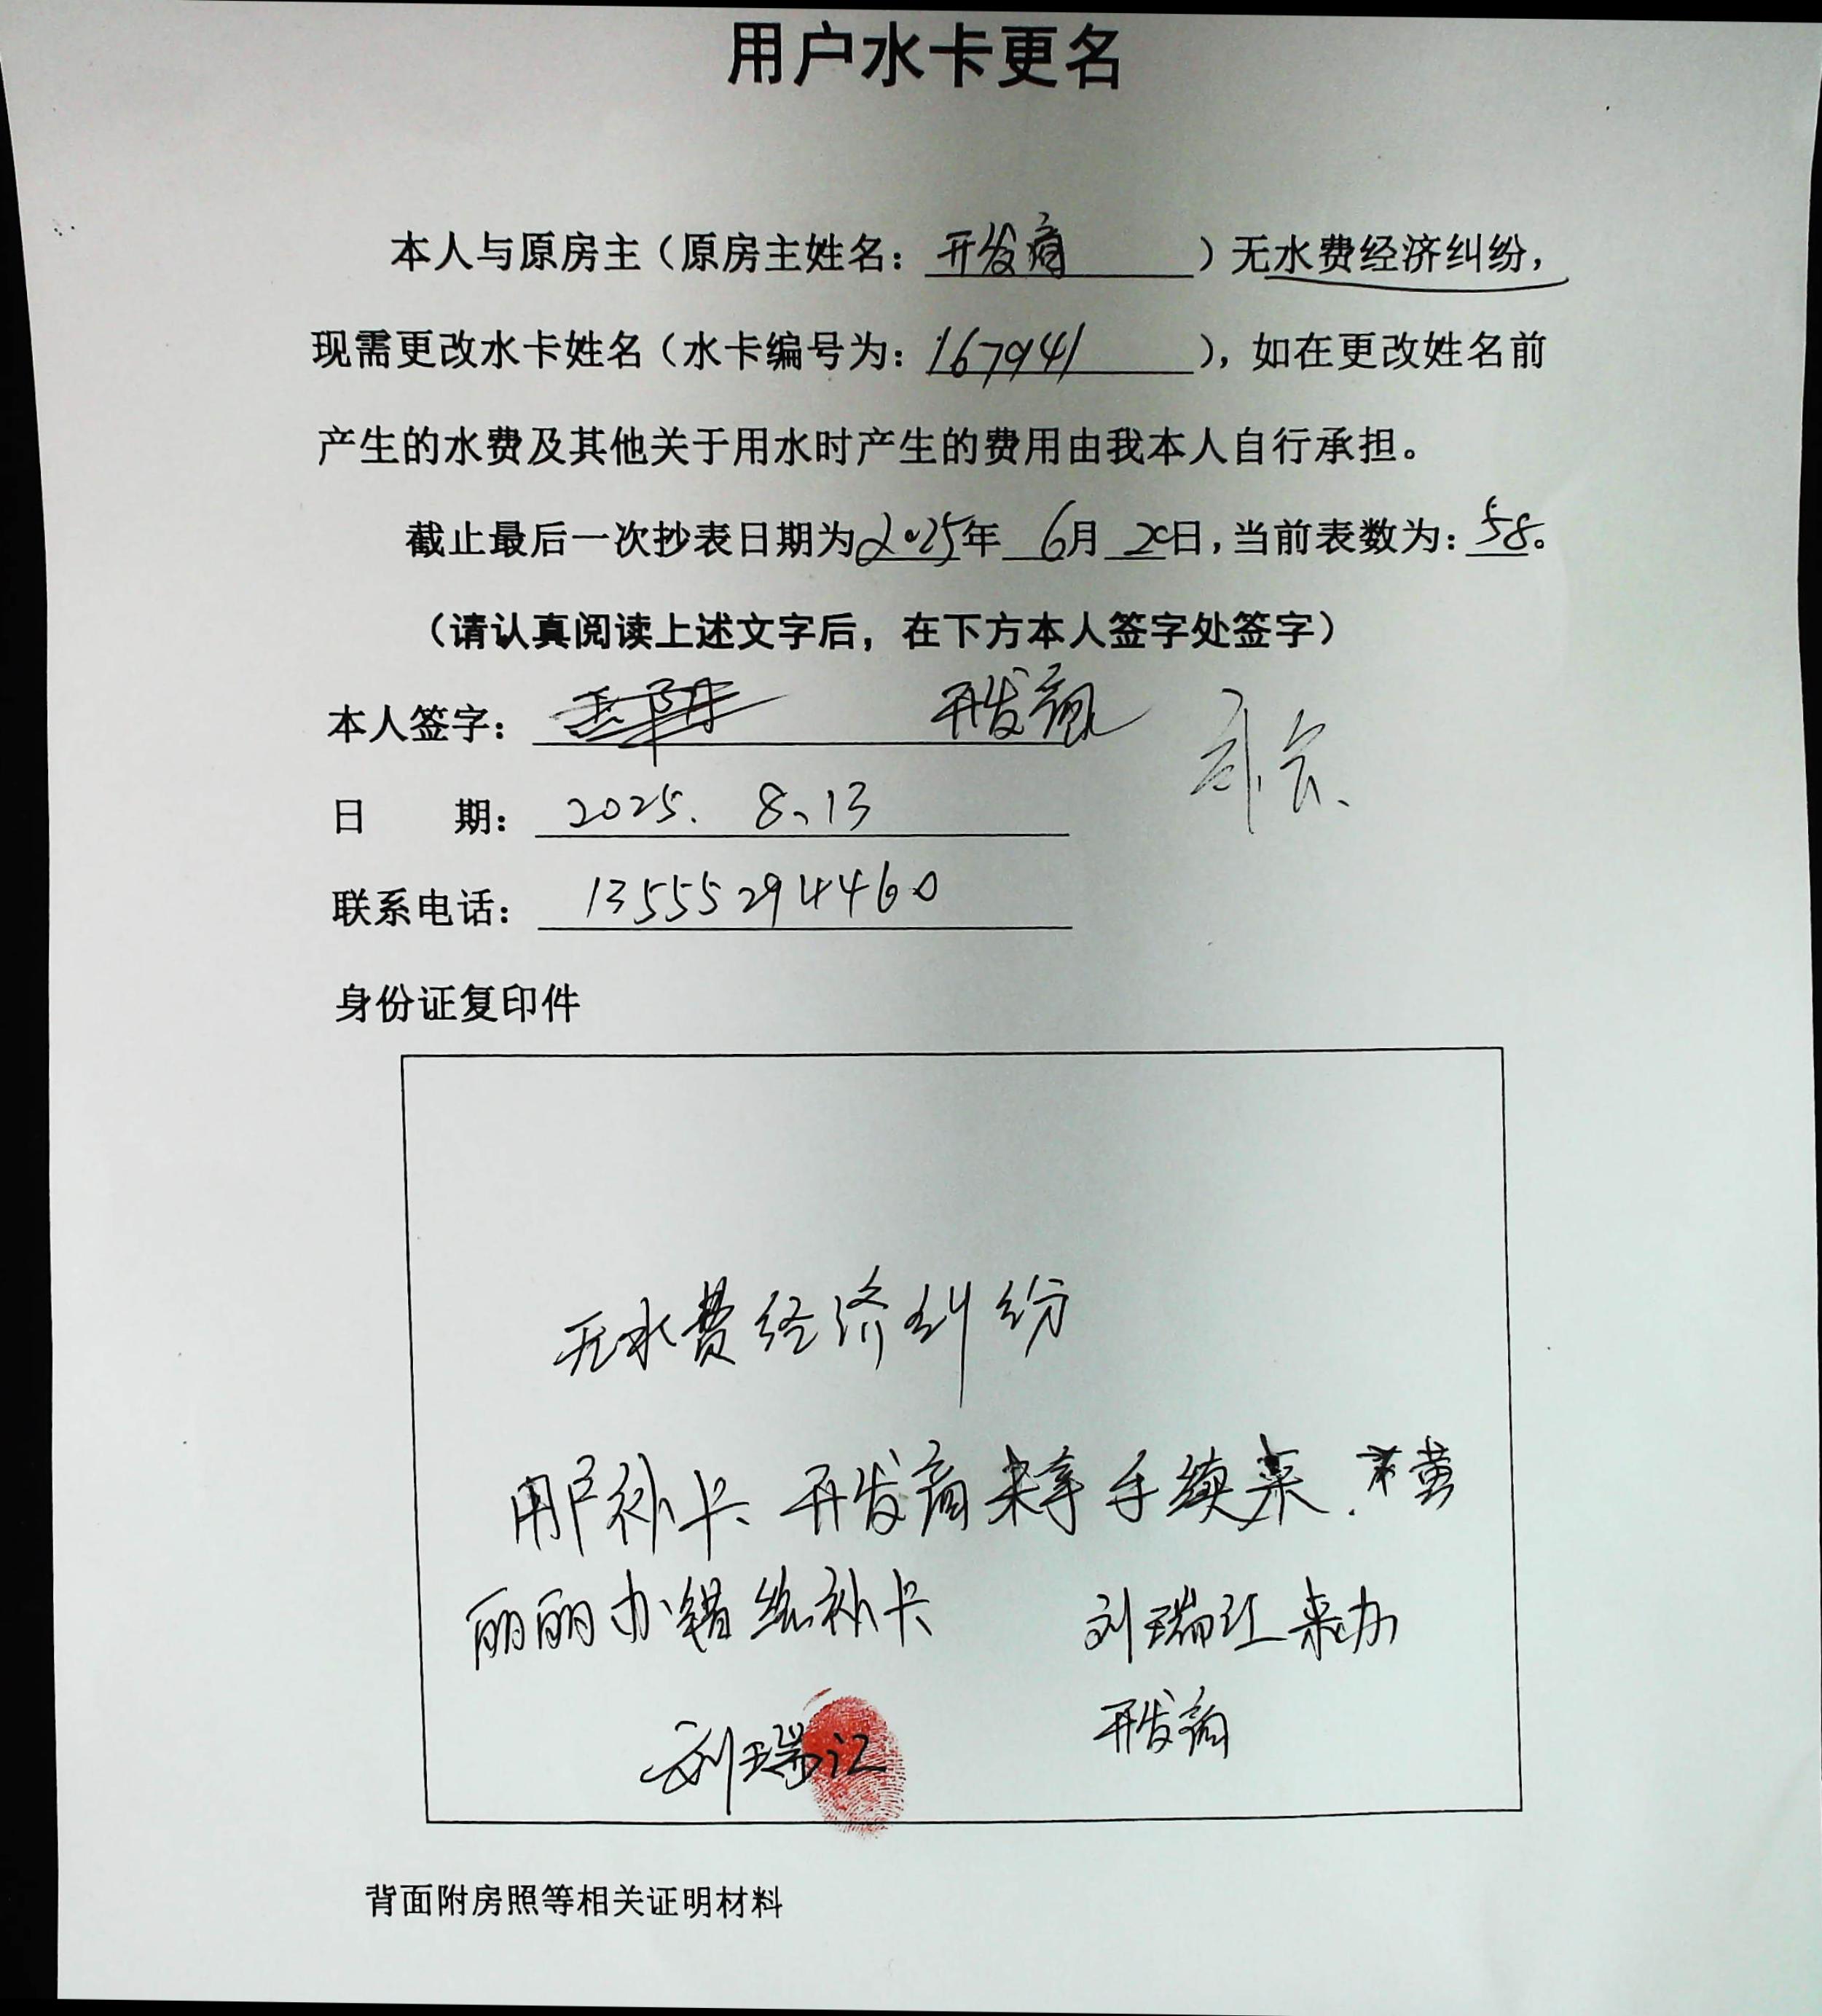 用户水卡更名
本人与原房主（原房主姓名：开发商）无水费经济纠纷，
现需更改水卡姓名（水卡编号为：167941），如在更改姓名前
产生的水费及其他关于用水时产生的费用由我本人自行承担。
截止最后一次抄表日期为2025年6月20日，当前表数为：58。
（请认真阅读上述文字后，在下方本人签字处签字）
本人签字： 开发商
日期：2025.8、13
联系电话：13555294460
身份证复印件
无水费经济纠纷
用户补卡 开发商来拿手续来
丽丽办错给补卡 刘瑞江来办
刘瑞江 开发商
背面附房照等相关证明材料